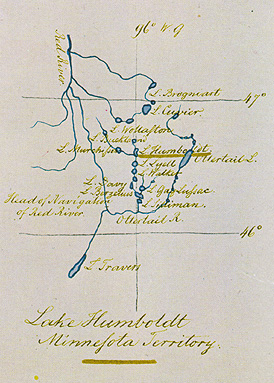 96° W G
Red River
L. Brogniart
L. Cuvier
47°
L. Wollaston
L. Buckland
L. Murchison
L. Humboldt
L. Lyell
Ottertail L.
L. Walker
L. Davy
L. Berzelius
L. GayLussac
L. Silliman
Head of Navigation
of Red River
Ottertail R.
46°
L. Travers
Lake Humboldt
Minnesota Territory.